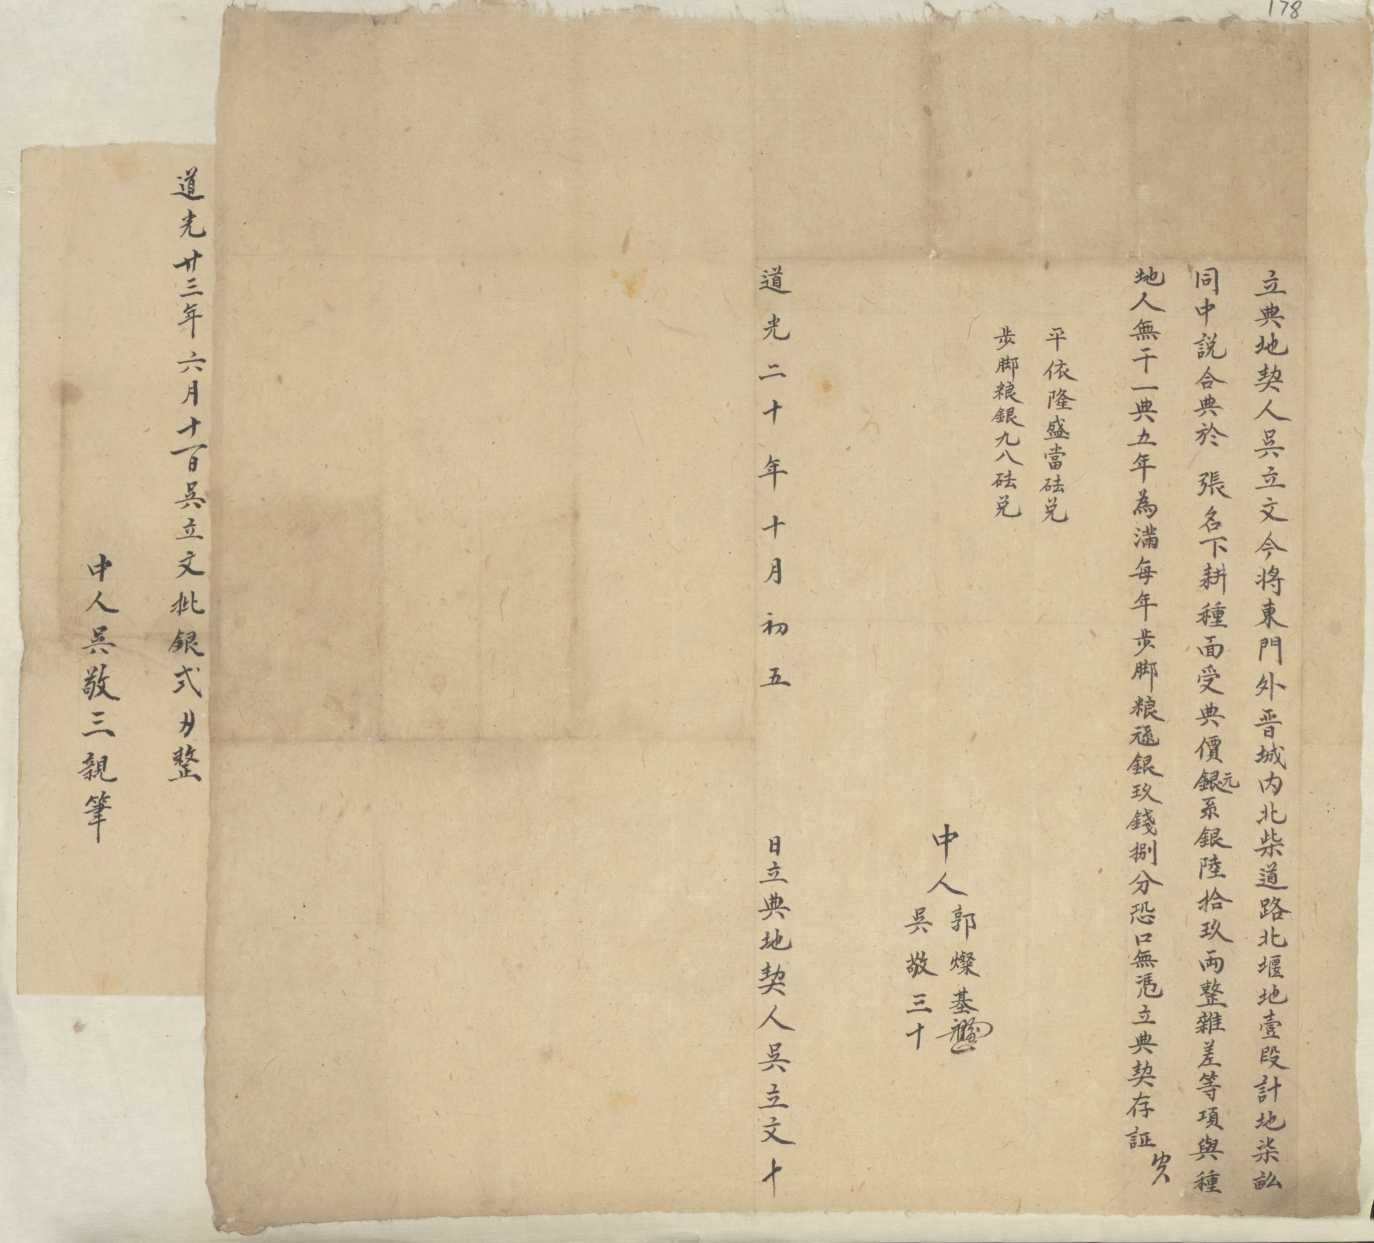 178
立典地契人吳立文今將東門外晋城内北柴道路北堰地壹段計地柒畝
同中説合典於 張名下耕種面受典價銀元系銀陸拾玖両整雜差等項與種
地人無干一典五年為滿每年步脚粮銀玖錢捌分恐口無慿立典契存証
平依隆盛當砝兑
步脚粮銀九八砝兑
中人 郭燦基
吳敬三十
道光二十年十月初五 日立典地契人吳立文十
道光廿三年六月十一日吳立文批銀弍刄整
中人吳敬三親筆